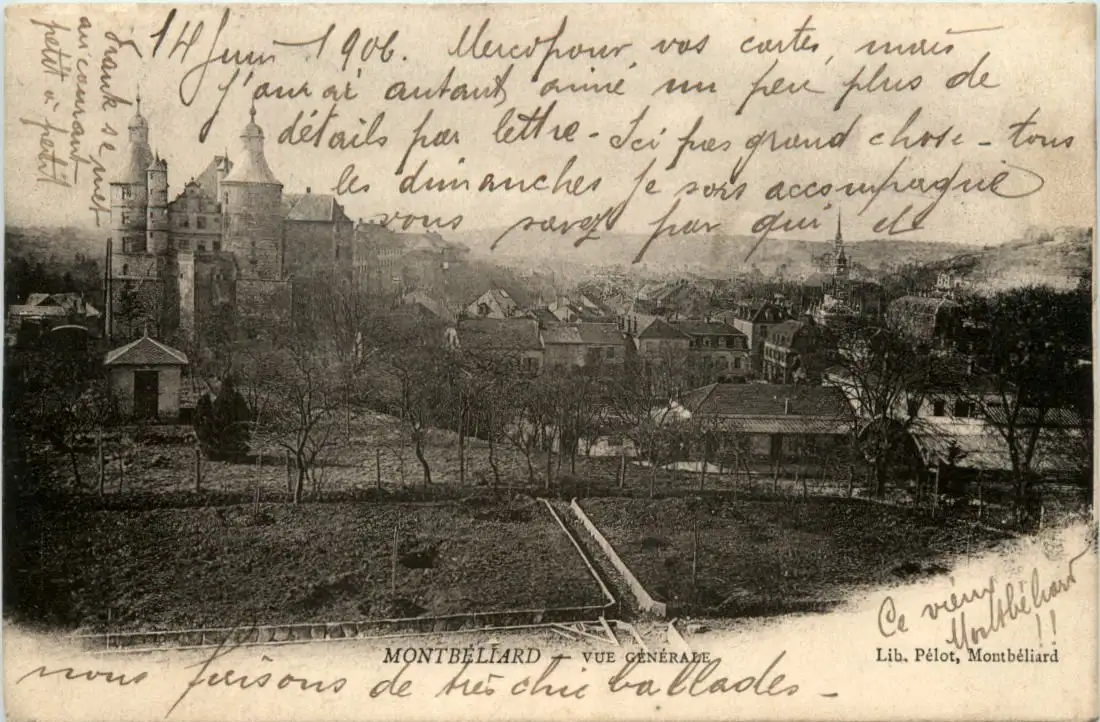 14 Juin 1906. Merci pour vos cartes, mais
j'aurai autant aimé un peu plus de
détails par lettre - Ici pas grand chose - tous
les dimanches je sors accompagné
vous savez par qui et
nous faisons de très chic ballades -
Frank se met
au courant
petit à petit
Ce vieux
Montbéliard
!!
MONTBÉLIARD - VUE GÉNÉRALE
Lib. Pélot, Montbéliard